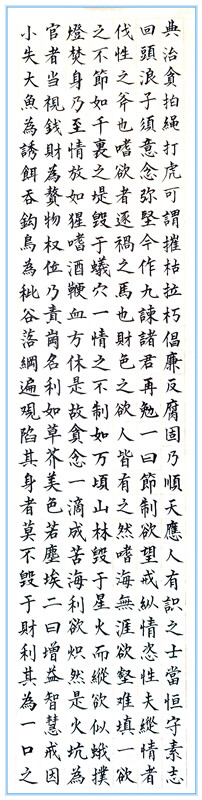 典治貪拍繩打虎可謂摧枯拉朽倡廉反腐固乃順天應人有識之士當恒守素志
回頭浪子須意念弥堅今作九諫諸君再勉一曰節制欲望戒纵情恣性夫縱情者
伐性之斧也嗜欲者逐禍之馬也財色之欲人皆有之然嗜海無涯欲壑難填一欲
之不節如千裏之堤毀于蟻穴一情之不制如万頃山林毀于星火而縱欲似蛾撲
燈焚身乃至情放如猩嗜酒鞭血方休是故貪念一滴成苦海利欲炽然是火坑為
官者當視錢財為贅物权位乃責崗名利如草芥美色若塵埃二曰增益智慧戒因
小失大魚為誘餌吞鈎鳥為秕谷落網遍观陷其身者莫不毀于財利其為一口之